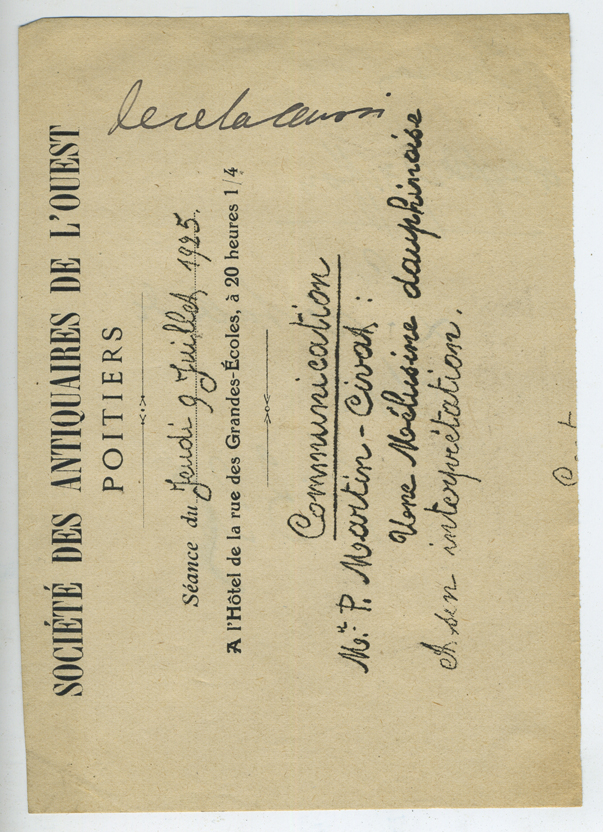 SOCIÉTÉ DES ANTIQUAIRES DE L'OUEST
POITIERS
Séance du Jeudi 9 Juillet 1925.
A l'Hôtel de la rue des Grandes-Écoles, à 20 heures 1/4
Communication
Mr. P. Martin-Civat :
Une Mélusine dauphinoise
et son interprétation.